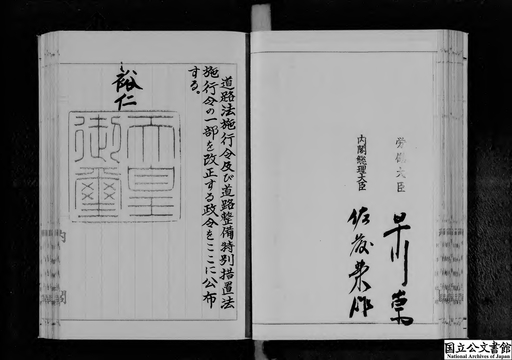 労働大臣
早川崇
内閣総理大臣
佐藤栄作
道路法施行令及び道路整備特別措置法
施行令の一部を改正する政令をここに公布
する。
裕仁
天皇
御璽
国立公文書館
National Archives of Japan